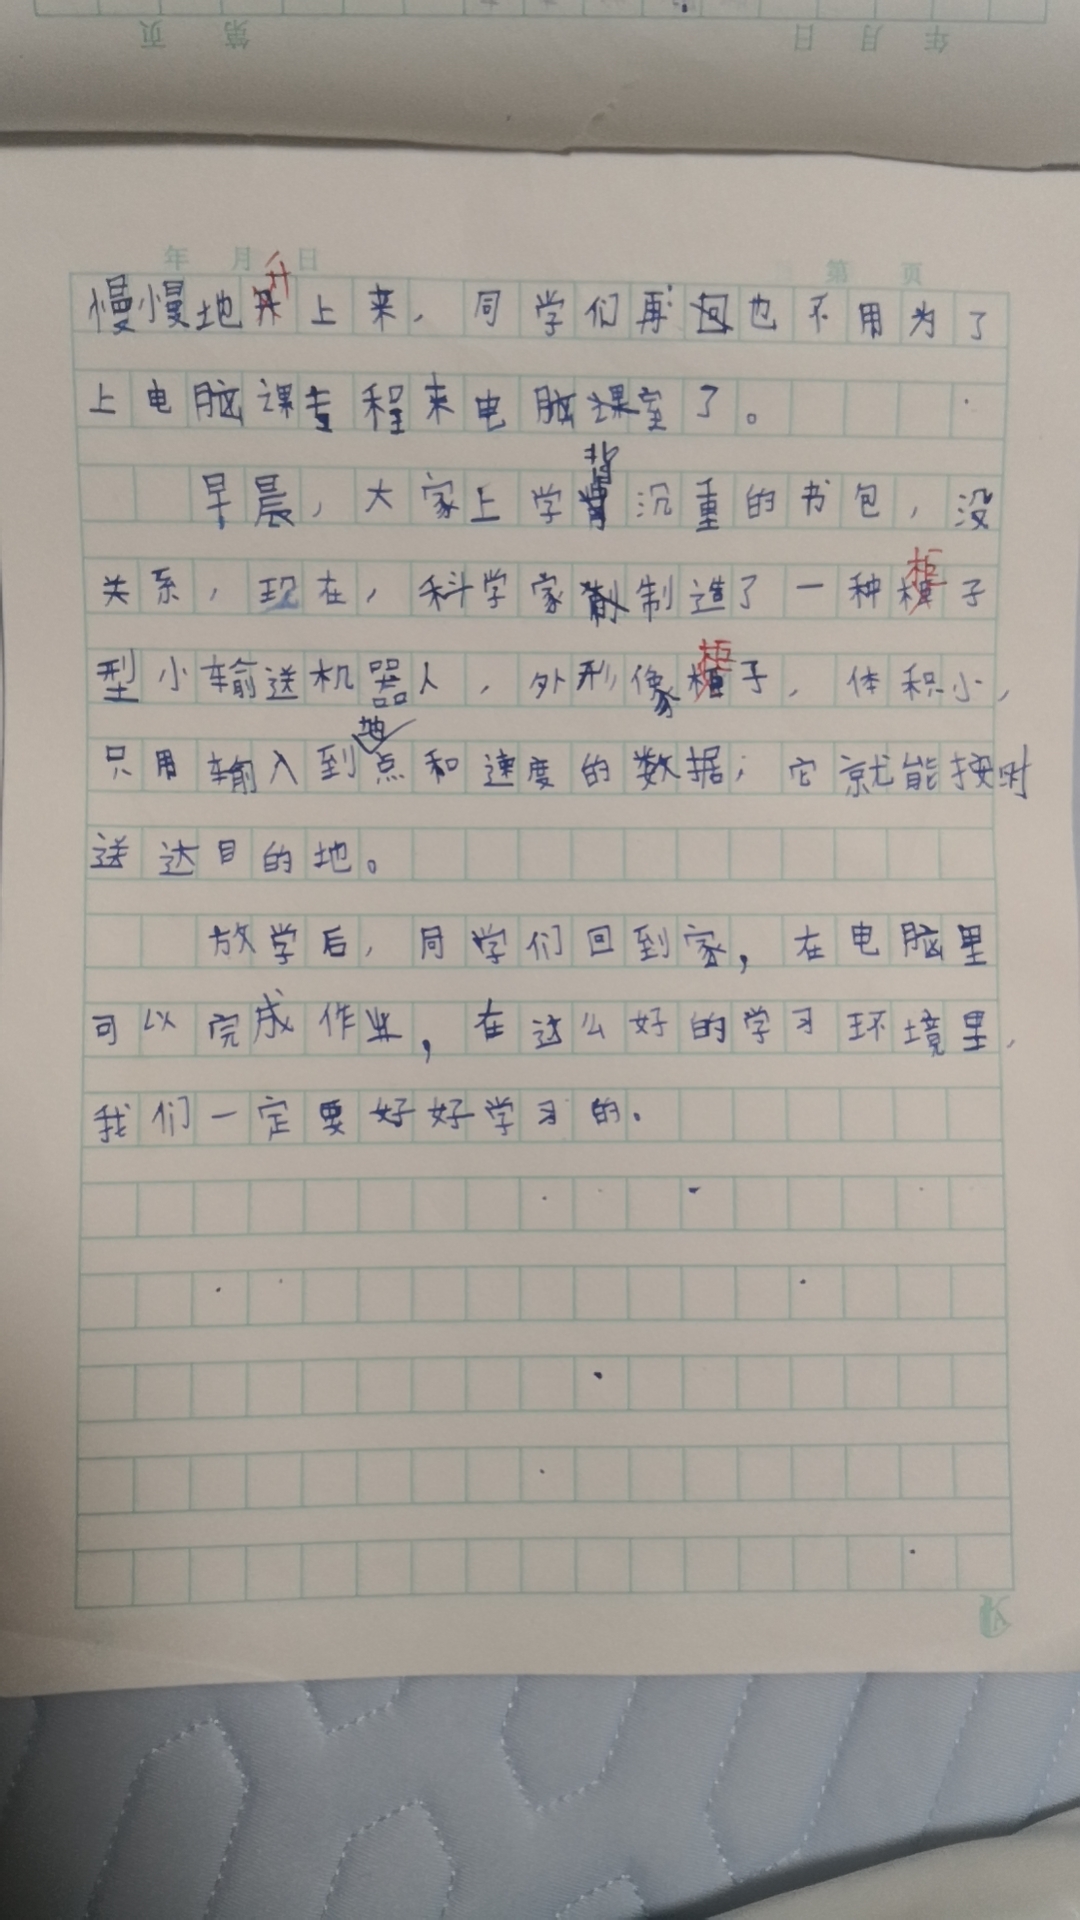 页 第 日 月 年
年 月 日 第 页
慢慢地升上来，同学们再也不用为了
上电脑课专程来电脑课室了。
早晨，大家上学背沉重的书包，没
关系，现在，科学家制造了一种柜子
型小输送机器人，外形像柜子，体积小，
只用输入到地点和速度的数据；它就能按时
送达目的地。
放学后，同学们回到家，在电脑里
可以完成作业，在这么好的学习环境里，
我们一定要好好学习的.